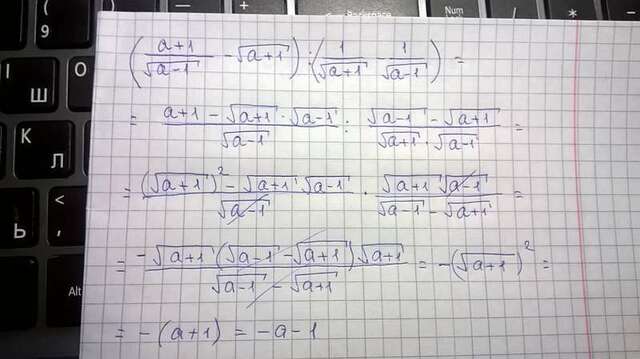 9 (
I Ш
К Л
Ь ;
Alt
Backspace
Num
((a+1)/√(a-1) - √(a+1)) : (1/√(a+1) - 1/√(a-1)) =
= (a+1 - √(a+1) · √(a-1))/√(a-1) : (√(a-1) - √(a+1))/(√(a+1) · √(a-1)) =
= ((√(a+1))² - √(a+1) √(a-1))/√(a-1) · (√(a+1) √(a-1))/(√(a-1) - √(a+1)) =
= (-√(a+1) (√(a-1) - √(a+1)) √(a+1))/(√(a-1) - √(a+1)) = -(√(a+1))² =
= -(a+1) = -a-1